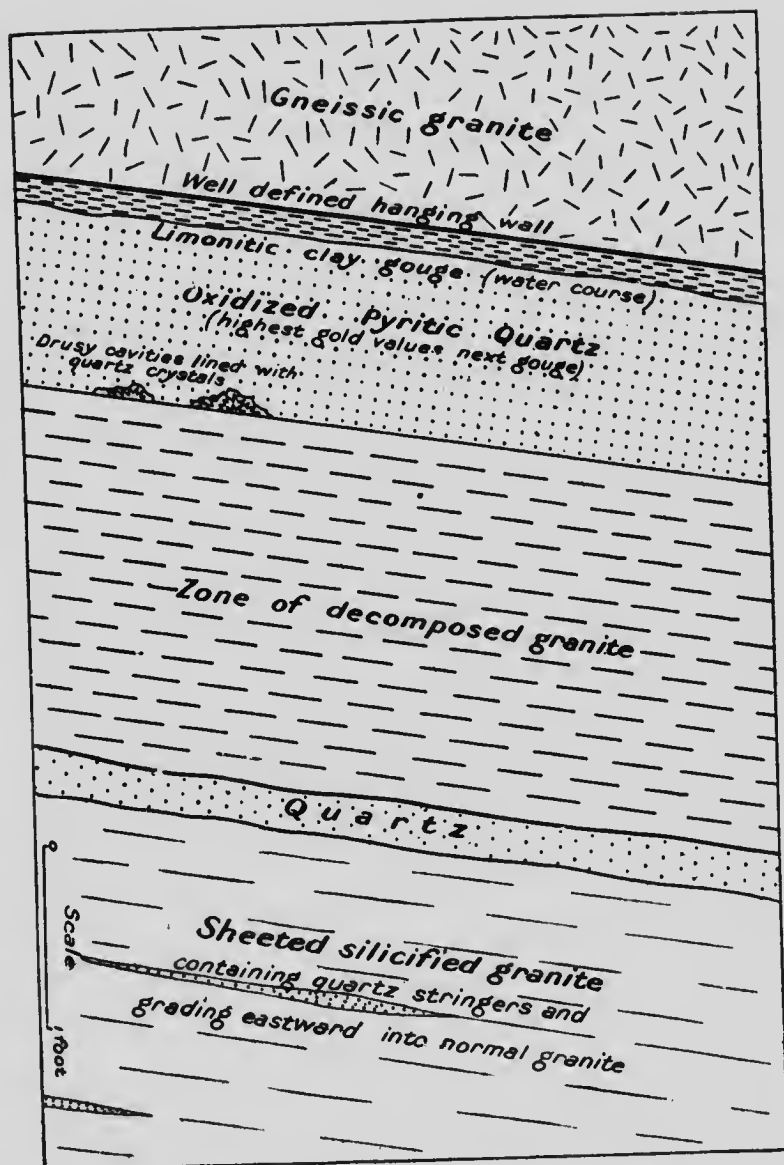 Gneissic granite
Well defined hanging wall
Limonitic clay gouge (water course)
Oxidized Pyritic Quartz
(highest gold values next gouge)
Drusy cavities lined with
quartz crystals
Zone of decomposed granite
Quartz
0
Scale
1 foot
Sheeted silicified granite
containing quartz stringers and
grading eastward into normal granite